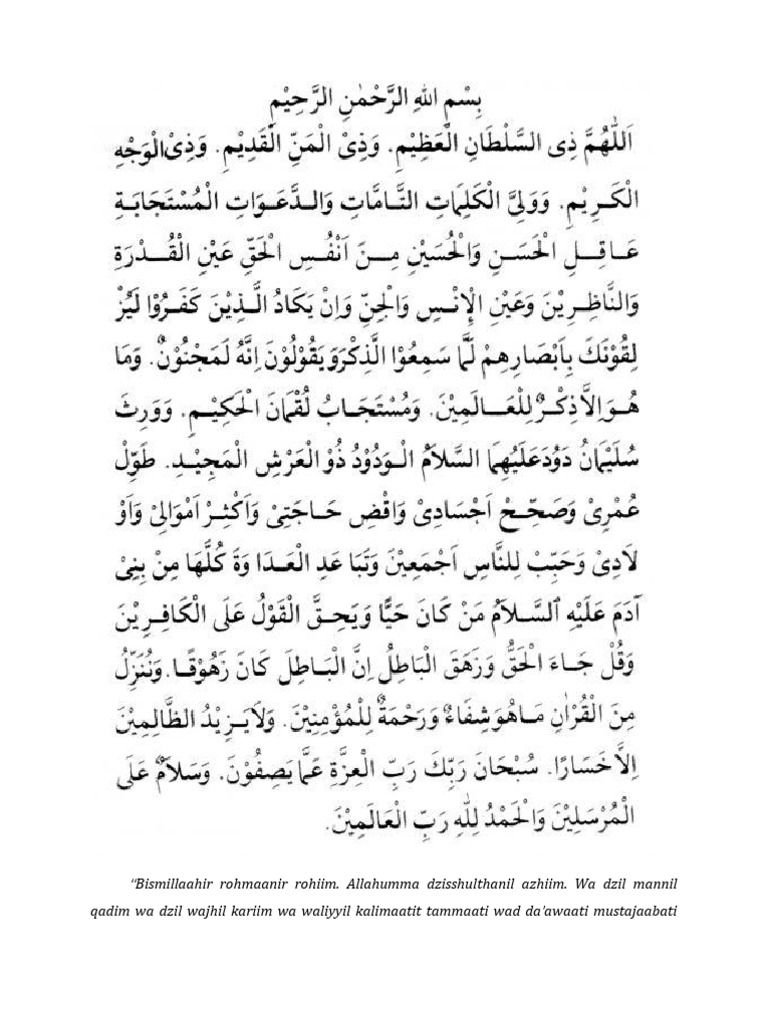 بِسْمِ اللهِ الرَّحْمٰنِ الرَّحِيْمِ
اَللّٰهُمَّ ذِى السُّلْطَانِ الْعَظِيْمِ. وَذِىْ الْمَنِّ الْقَدِيْمِ. وَذِىْ الْوَجْهِ
الْكَرِيْمِ. وَوَلِىِّ الْكَلِمَاتِ التَّامَّاتِ وَالدَّعَوَاتِ الْمُسْتَجَابَةِ
عَاقِلِ الْحَسَنِ وَالْحُسَيْنِ مِنَ اَنْفُسِ الْحَقِّ عَيْنِ الْقُدْرَةِ
وَالنَّاظِرِيْنَ وَعَيْنِ الْاِنْسِ وَالْجِنِّ وَاِنْ يَكَادُ الَّذِيْنَ كَفَرُوْا لَيُزْ
لِقُوْنَكَ بِاَبْصَارِهِمْ لَمَّا سَمِعُوْا الذِّكْرَ وَيَقُوْلُوْنَ اِنَّهُ لَمَجْنُوْنٌ. وَمَا
هُوَ اِلاَّ ذِكْرٌ لِلْعَالَمِيْنَ. وَمُسْتَجَابُ لُقْمَانَ الْحَكِيْمِ. وَوَرِثَ
سُلَيْمَانُ دَوُدَ عَلَيْهِمَا السَّلَامُ الْوَدُوْدُ ذُو الْعَرْشِ الْمَجِيْدِ. طَوِّلْ
عُمْرِىْ وَصَحِّحْ اَجْسَادِىْ وَاقْضِ حَاجَتِىْ وَاَكْثِرْ اَمْوَالِىْ وَاَوْ
لَادِىْ وَحَبِّبْ لِلنَّاسِ اَجْمَعِيْنَ وَتَبَا عَدِ الْعَدَا وَةَ كُلَّهَا مِنْ بَنِىْ
آدَمَ عَلَيْهِ السَّلَامُ مَنْ كَانَ حَيًّا وَيَحِقَّ الْقَوْلُ عَلَى الْكَافِرِيْنَ
وَقُلْ جَاءَ الْحَقُّ وَزَهَقَ الْبَاطِلُ اِنَّ الْبَاطِلَ كَانَ زَهُوْقًا. وَنُنَزِّلُ
مِنَ الْقُرْاٰنِ مَا هُوَ شِفَاءٌ وَرَحْمَةٌ لِلْمُؤْمِنِيْنَ. وَلَا يَزِيْدُ الظَّالِمِيْنَ
اِلاَّ خَسَارًا. سُبْحَانَ رَبِّكَ رَبِّ الْعِزَّةِ عَمَّا يَصِفُوْنَ. وَسَلَامٌ عَلَى
الْمُرْسَلِيْنَ وَالْحَمْدُ لِلّٰهِ رَبِّ الْعَالَمِيْنَ.
“Bismillaahir rohmaanir rohiim. Allahumma dzisshulthanil azhiim. Wa dzil mannil
qadim wa dzil wajhil kariim wa waliyyil kalimaatit tammaati wad da’awaati mustajaabati